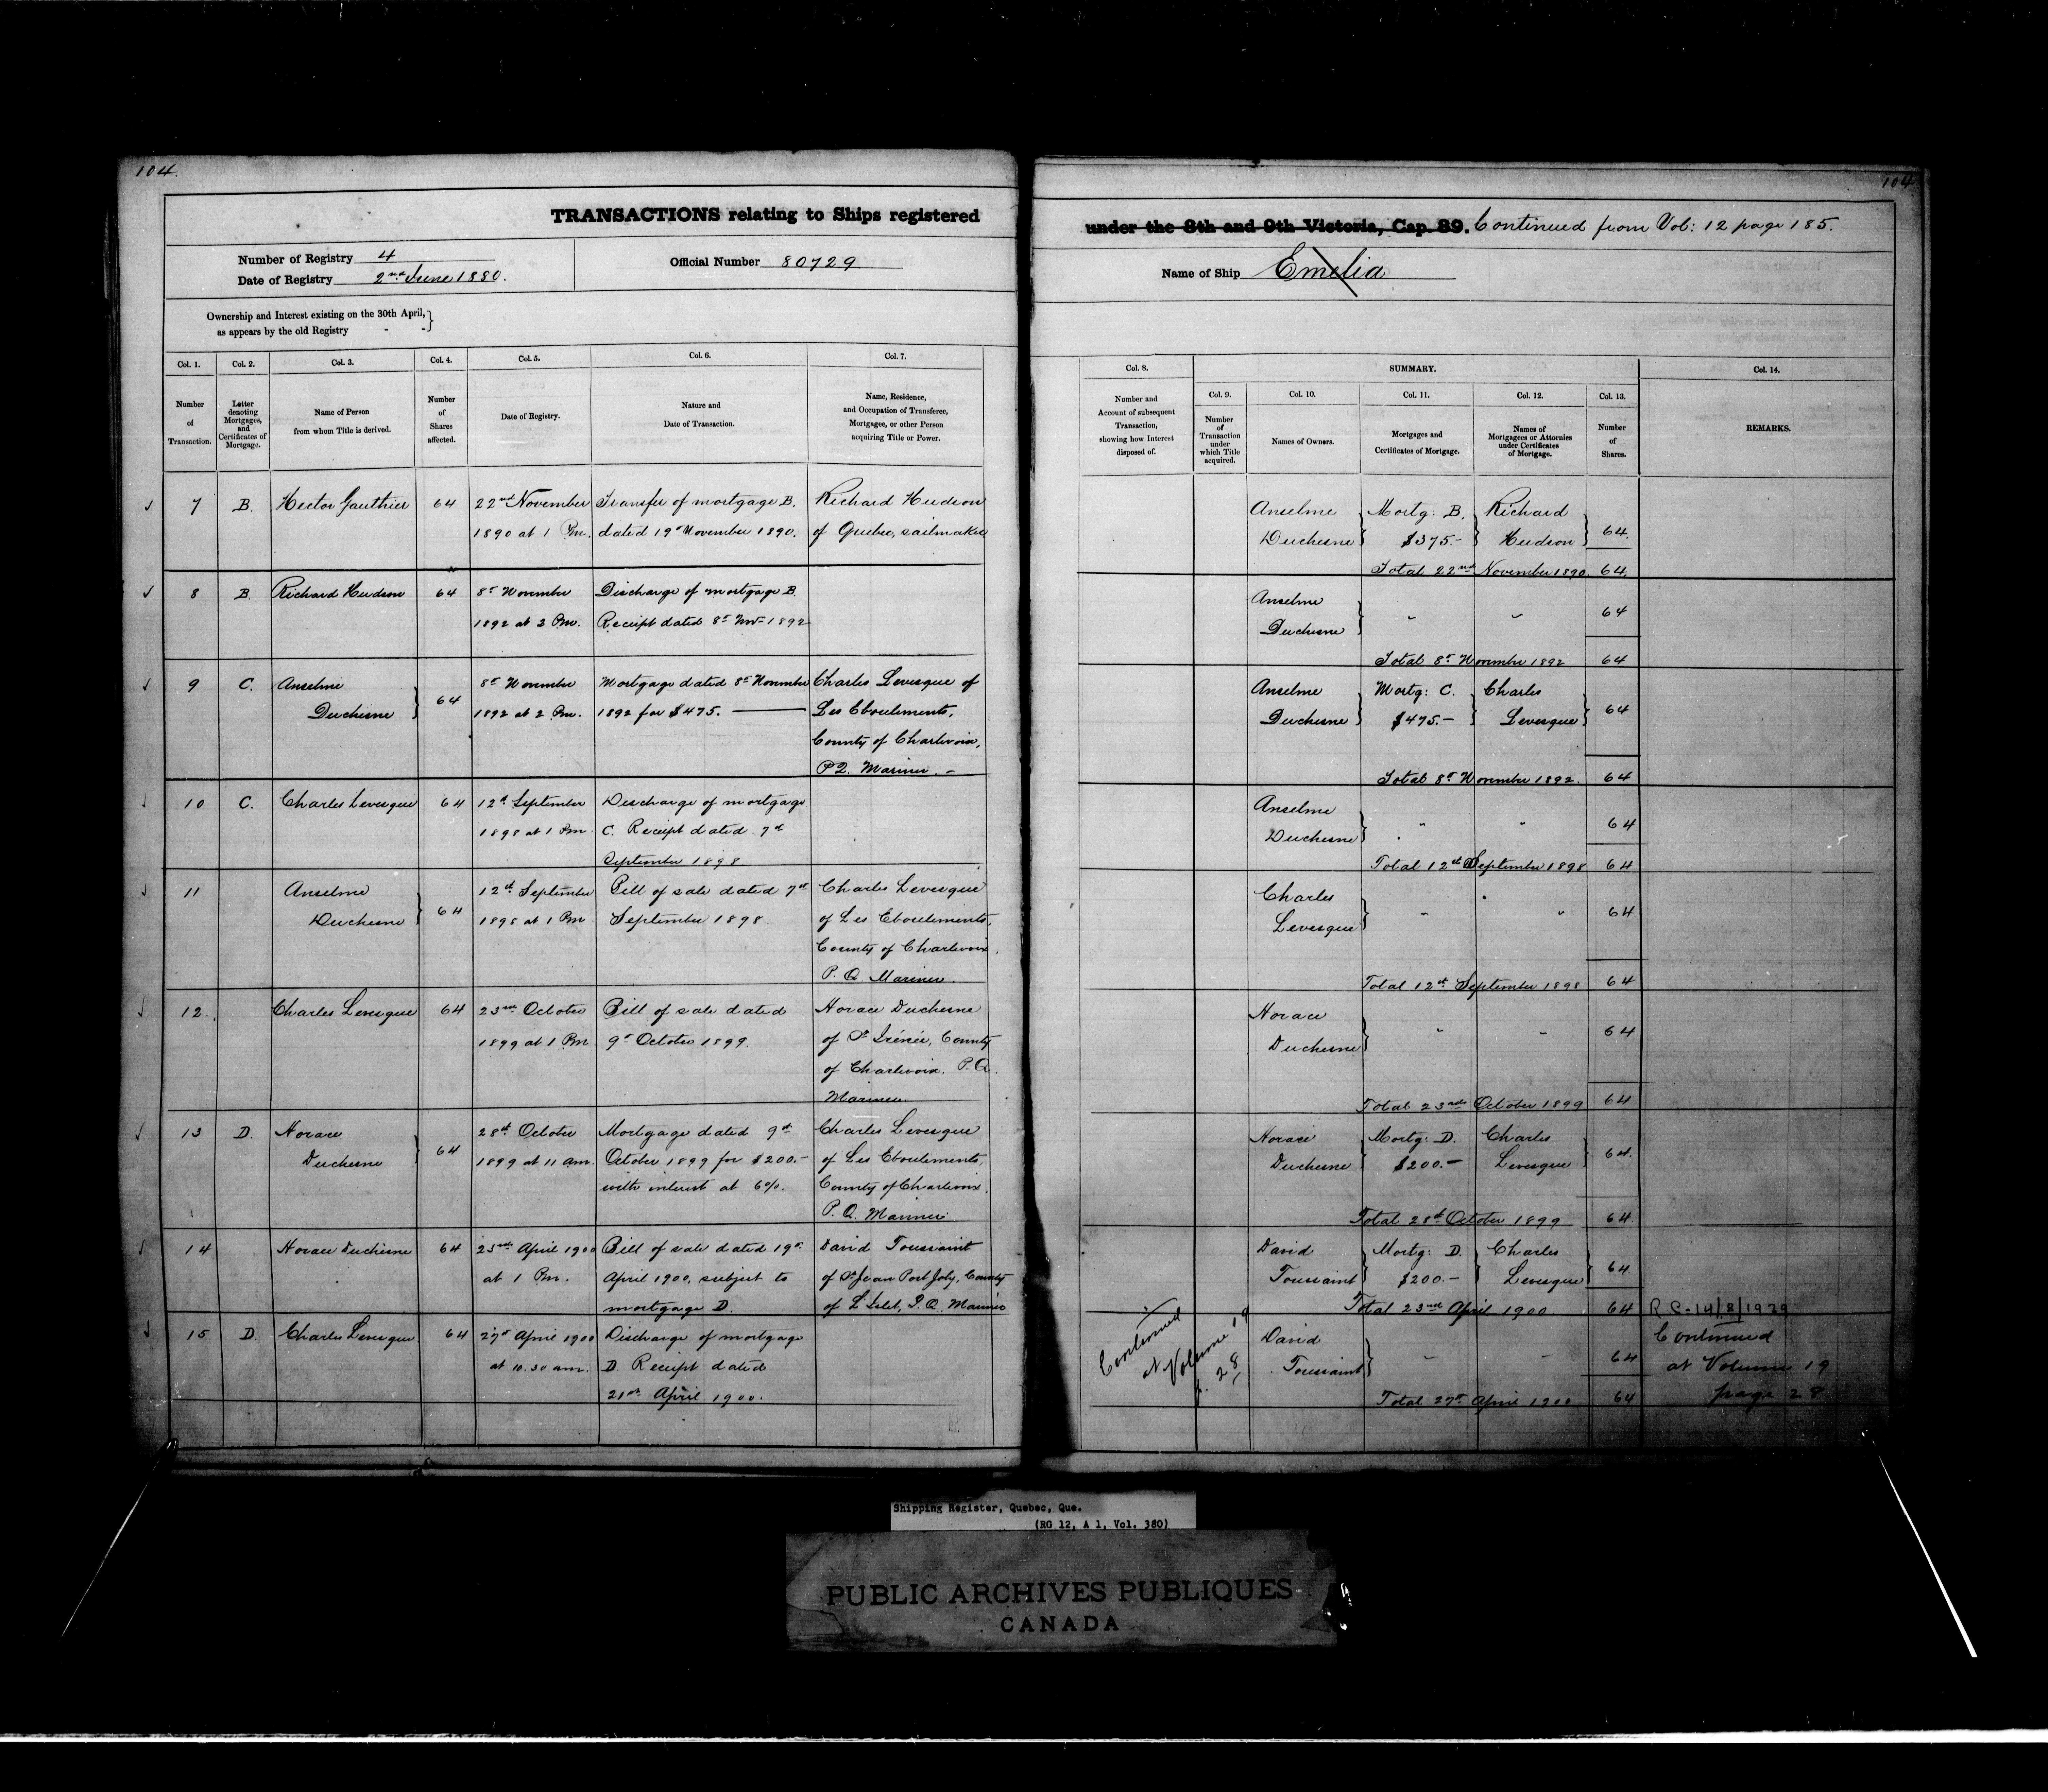 104.
104
TRANSACTIONS relating to Ships registered
under the 8th and 9th Victoria, Cap. 89. Continued from Vol: 12 page 185.
Number of Registry 4
Date of Registry 2nd June 1880.
Official Number 80729
Name of Ship Emelia
Ownership and Interest existing on the 30th April,
as appears by the old Registry - -
Col. 1.
Number
of
Transaction.
Col. 2.
Letter
denoting
Mortgages,
and
Certificates of
Mortgage.
Col. 3.
Name of Person
from whom Title is derived.
Col. 4.
Number
of
Shares
affected.
Col. 5.
Date of Registry.
Col. 6.
Nature and
Date of Transaction.
Col. 7.
Name, Residence,
and Occupation of Transferee,
Mortgagee, or other Person
acquiring Title or Power.
Col. 8.
Number and
Account of subsequent
Transaction,
showing how Interest
disposed of.
SUMMARY.
Col. 9.
Number
of
Transaction
under
which Title
acquired.
Col. 10.
Names of Owners.
Col. 11.
Mortgages and
Certificates of Mortgage.
Col. 12.
Names of
Mortgagees or Attornies
under Certificates
of Mortgage.
Col. 13.
Number
of
Shares.
Col. 14.
REMARKS.
7 B. Hector Gauthier 64 22nd November Transfer of mortgage B. Richard Hudson
1890 at 1 Pm. dated 19th November 1890. of Quebec, sailmaker
Anselme Mortg: B. Richard
Duchesne $375.- Hudson 64.
Total 22nd November 1890. 64.
8 B. Richard Hudson 64 8th November Discharge of mortgage B.
1892 at 2 Pm. Receipt dated 8th Nov- 1892
Anselme
Duchesne " " 64
Total 8th November 1892 64
9 C. Anselme 8th November Mortgage dated 8th November Charles Levesque of
Duchesne 64 1892 at 2 Pm. 1892 for $475. Les Eboulements,
County of Charlevoix,
P.Q. Mariner. -
Anselme Mortg: C. Charles
Duchesne $475.- Levesque 64
Total 8th November 1892. 64
10 C. Charles Levesque 64 12th September Discharge of mortgage
1898 at 1 Pm. C. Receipt dated 7th
September 1898.
Anselme
Duchesne " " 64
Total 12th September 1898 64
11 Anselme 12th September Bill of sale dated 7th Charles Levesque
Duchesne 64 1898 at 1 Pm September 1898. of Les Eboulements,
County of Charlevoix.
P. Q. Mariner
Charles
Levesque " " 64
Total 12th September 1898 64
12. Charles Levesque 64 23rd October Bill of sale dated Horace Duchesne
1899 at 1 Pm 9th October 1899. of St Irénée, County
of Charlevoix. P.Q.
Mariner
Horace
Duchesne " " 64
Total 23rd October 1899 64
13 D. Horace 28th October Mortgage dated 9th Charles Levesque
Duchesne 64 1899 at 11 am. October 1899 for $200.- of Les Eboulements,
with interest at 6%. County of Charlevoix.
P. Q. Mariner
Horace Mortg: D. Charles
Duchesne $200.- Levesque 64.
Total 28th October 1899 64
14 Horace Duchesne 64 23rd April 1900 Bill of sale dated 19th David Toussaint
at 1 Pm. April 1900, subject to of St Jean Port Joly, County
mortgage D. of L'Islet, P.Q. Mariner
David Mortg: D. Charles
Toussaint $200.- Levesque 64
Total 23rd April 1900. 64 R C-14/8/1929
15 D. Charles Levesque 64 27th April 1900 Discharge of mortgage
at 10.30 am. D Receipt dated
21st April 1900.
Continued
at Volume 19
p. 28
David
Toussaint " " 64
Total 27th April 1900 64
Continued
at Volume 19
page 28
Shipping Register, Quebec, Que.
(RG 12, A 1, Vol. 380)
PUBLIC ARCHIVES PUBLIQUES
CANADA